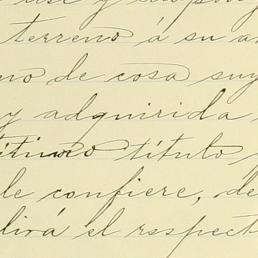 terreno á su a
no de cosa suy
y adquirida
ítimo título
le confiere, de
dirá el respect